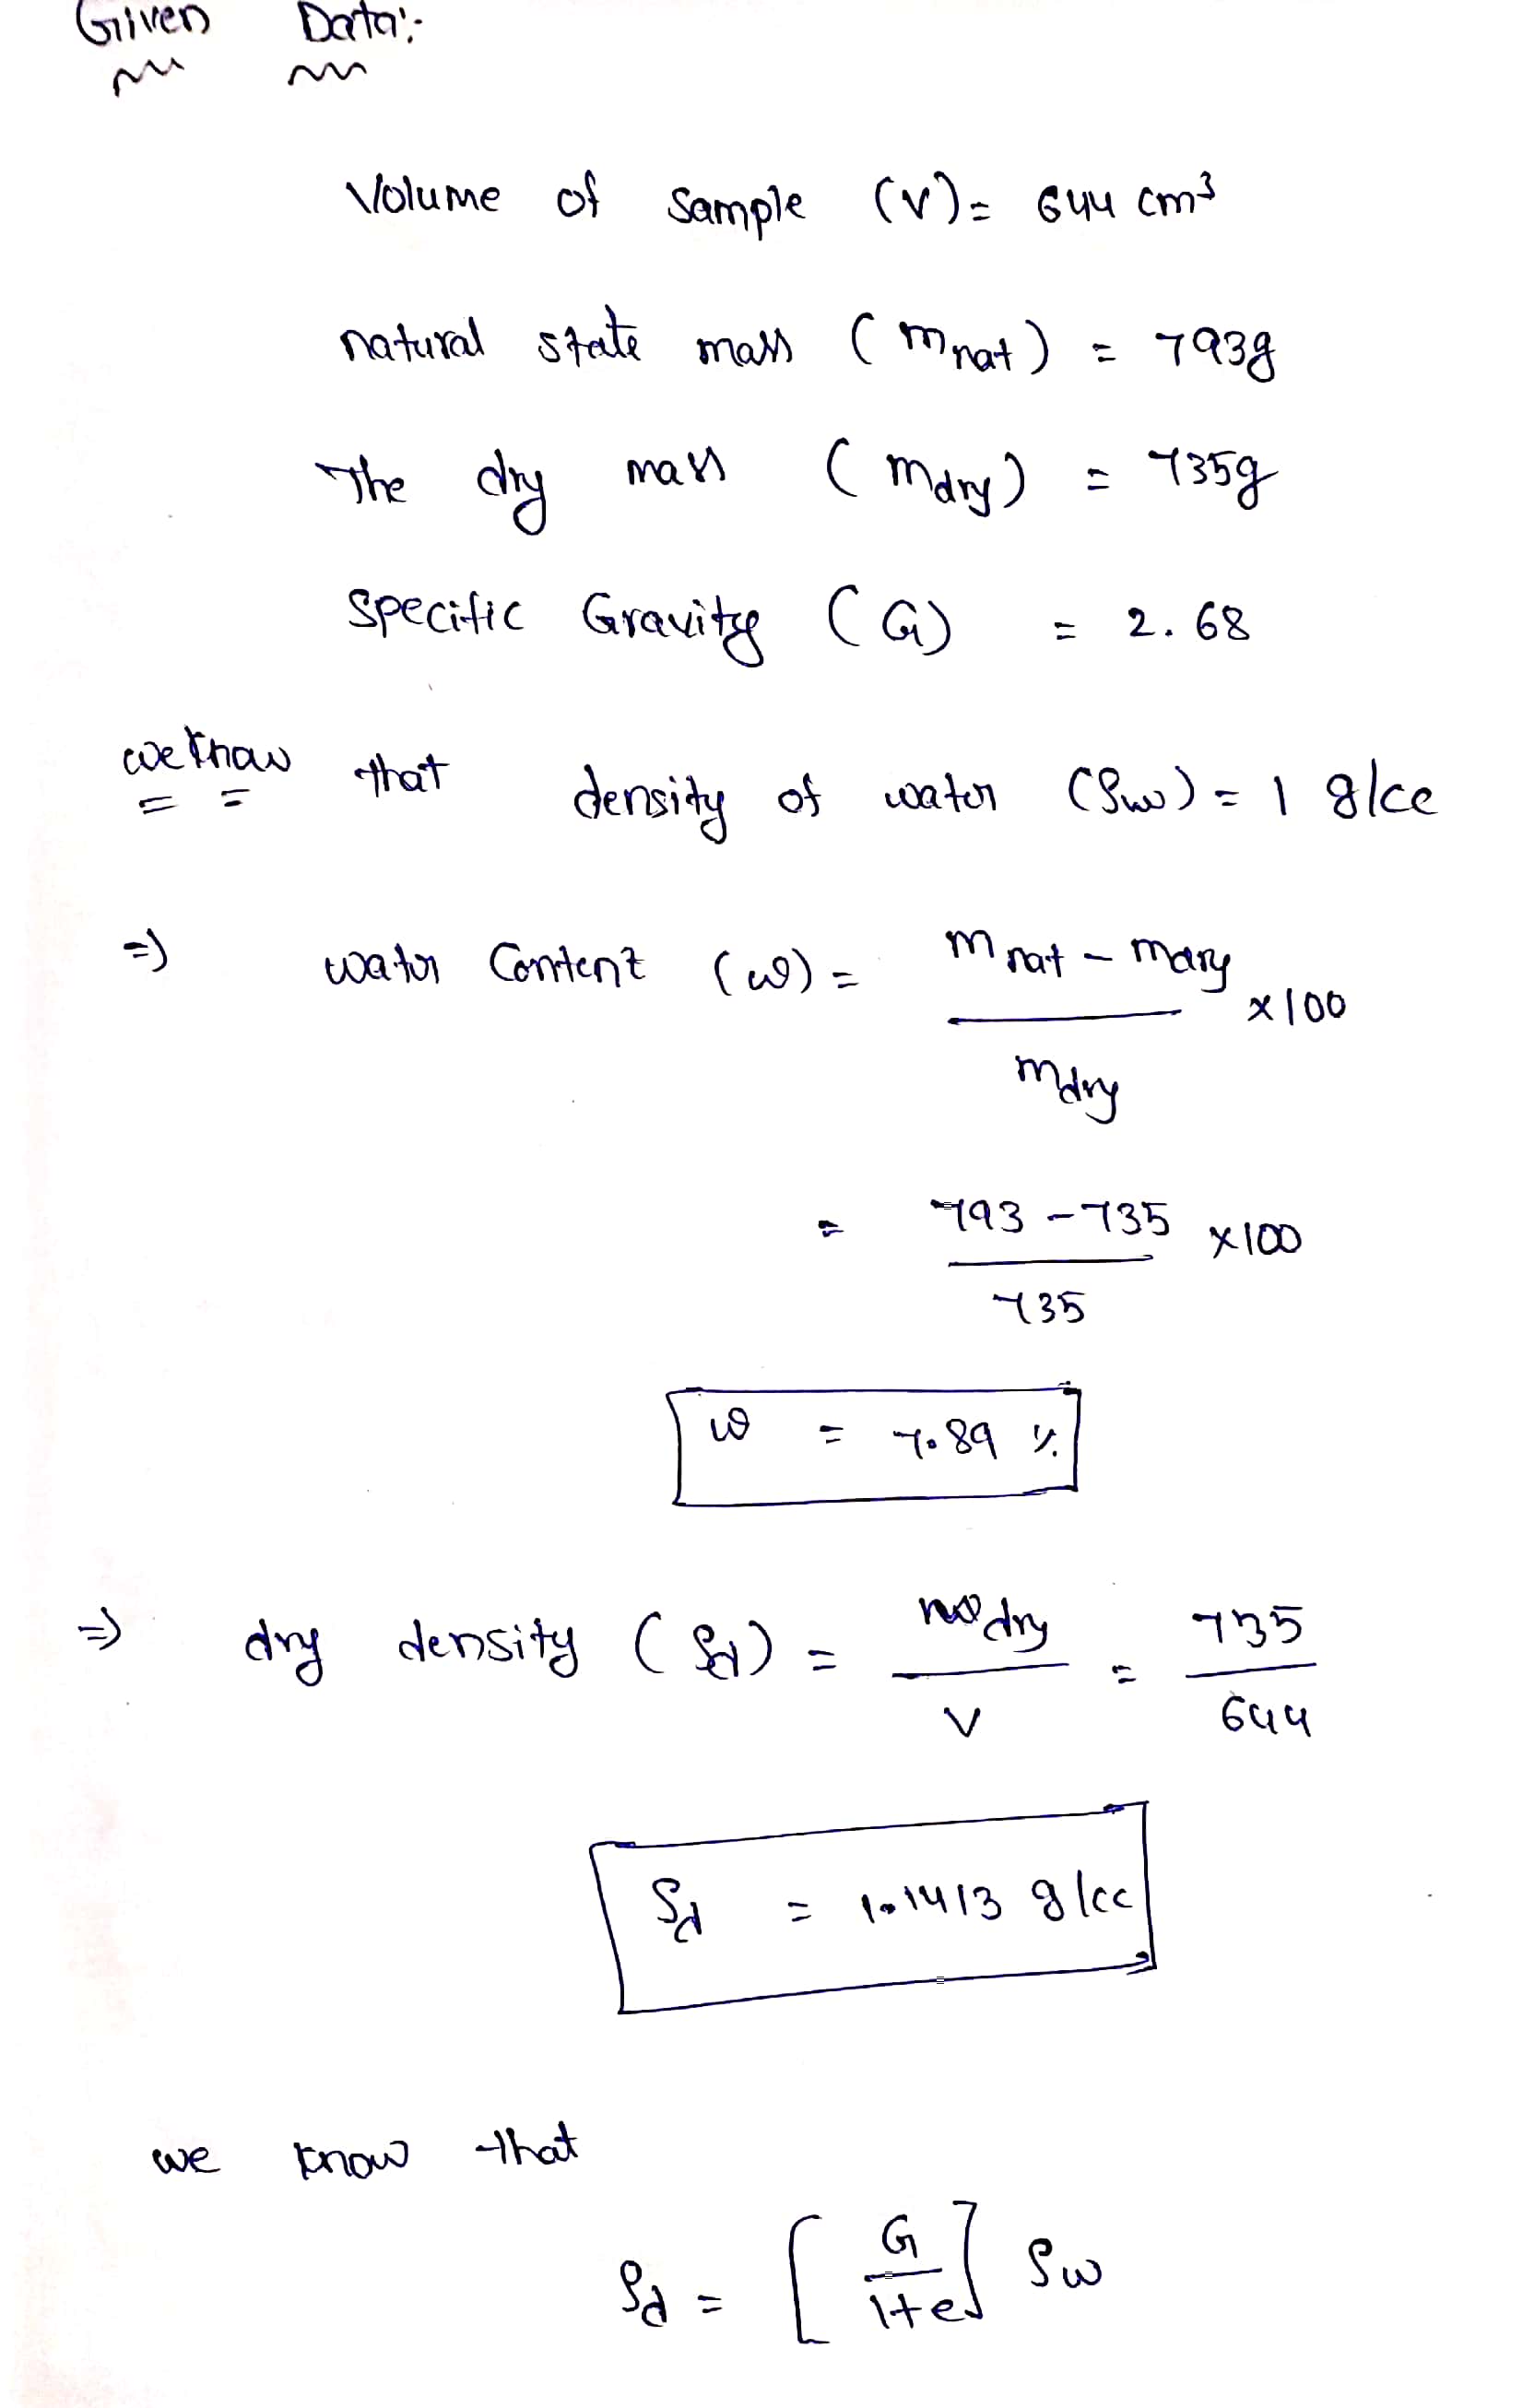 Given Data:-
Volume of Sample (V) = 644 cm³
natural state mass (mnat) = 793g
The dry mass (mdry) = 735g
Specific Gravity (G) = 2.68
we know that density of water (ρw) = 1 g/cc
=) water Content (ω) = mnat - mdry / mdry x100
= 793 - 735 / 735 x100
ω = 7.89 %
=) dry density (ρd) = mdry / V = 735 / 644
ρd = 1.1413 g/cc
we know that
ρd = [G / 1+e] ρw